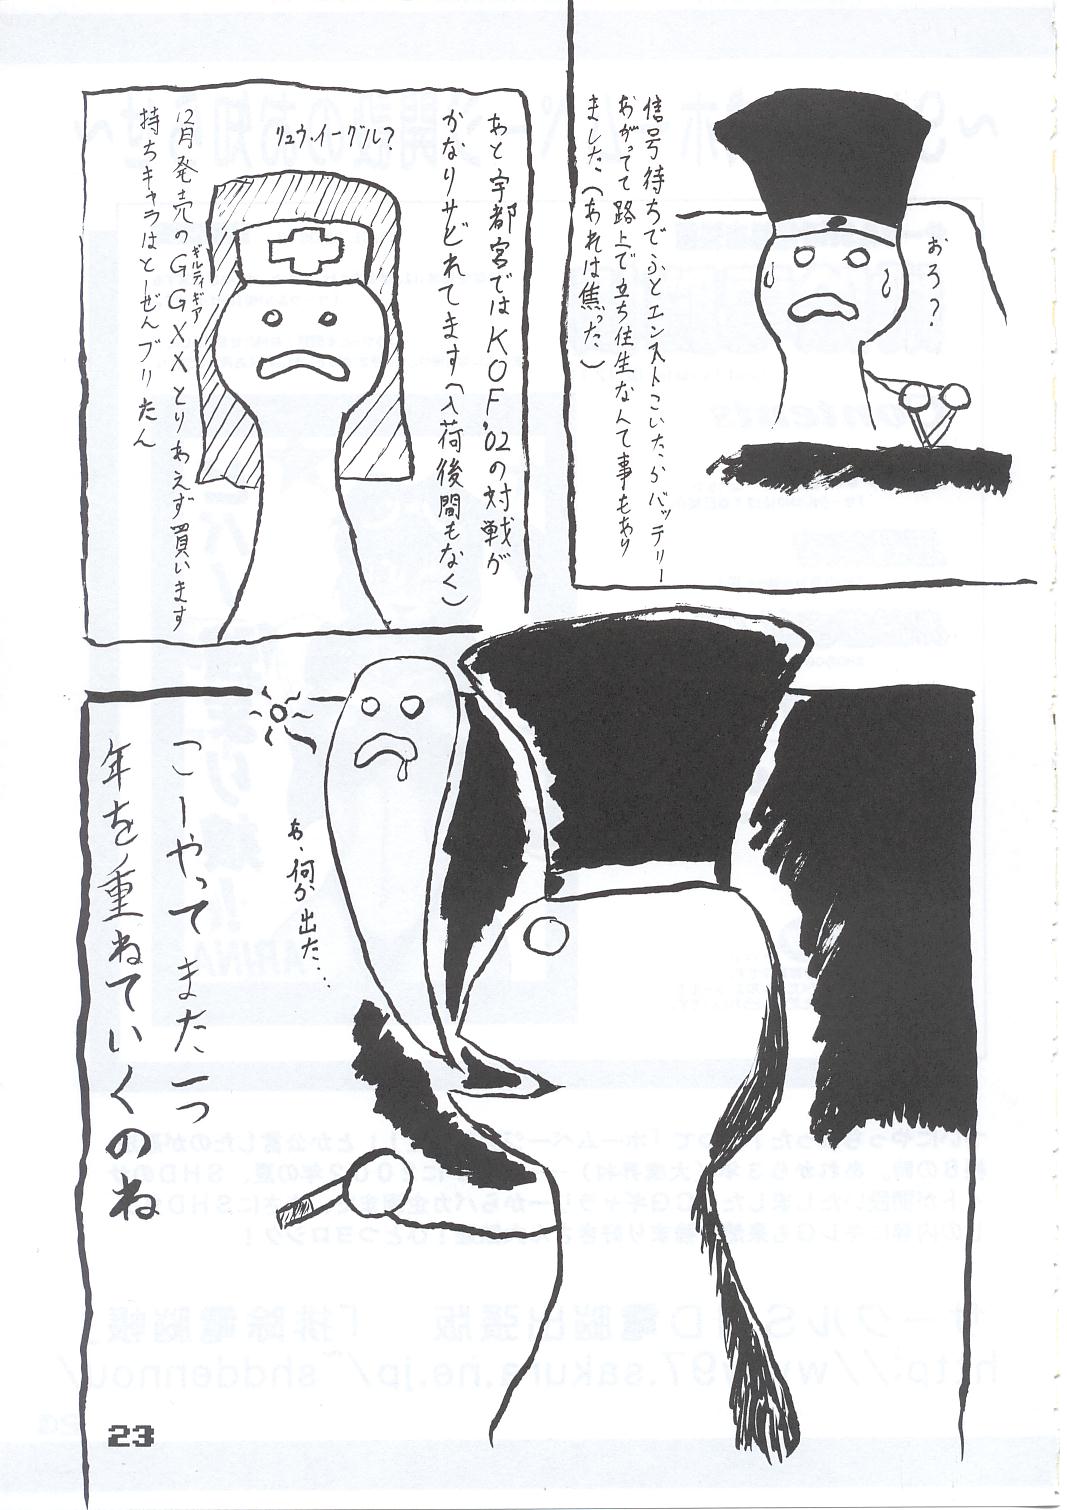 信号待ちでふとエンストこいたらバッテリー
あがってて路上で立ち往生なんて事もあり
ました。（あれは焦った）
おろ？
あと宇都宮ではKOF'02の対戦が
かなりサビれてます（入荷後間もなく）
リュウ・イーグル？
12月発売のGGXXとりあえず買います
ギルティギア
持ちキャラはとーぜんブリたん
あ、何か出た…
こーやってまた一つ
年を重ねていくのね
23